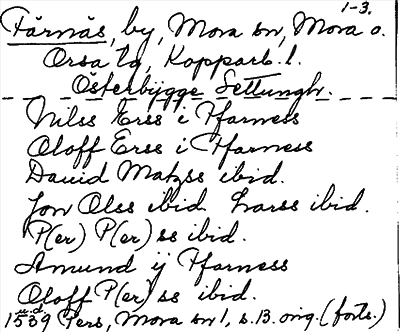 1-3.
Färnäs, by, Mora sn, Mora o.
Orsa tg, Kopparb. l.
Österbygge Settungh.
Nilss Erss i Pfarness
Oloff Erss i Pfarness
Dauid Matzss ibid.
Jon Olss ibid. Larss ibid.
P(er) P(er)ss ibid.
Amund ij Pfarness
Oloff P(er)ss ibid.
1539 Pers, Mora sn 1, s. 13. orig. (forts.)